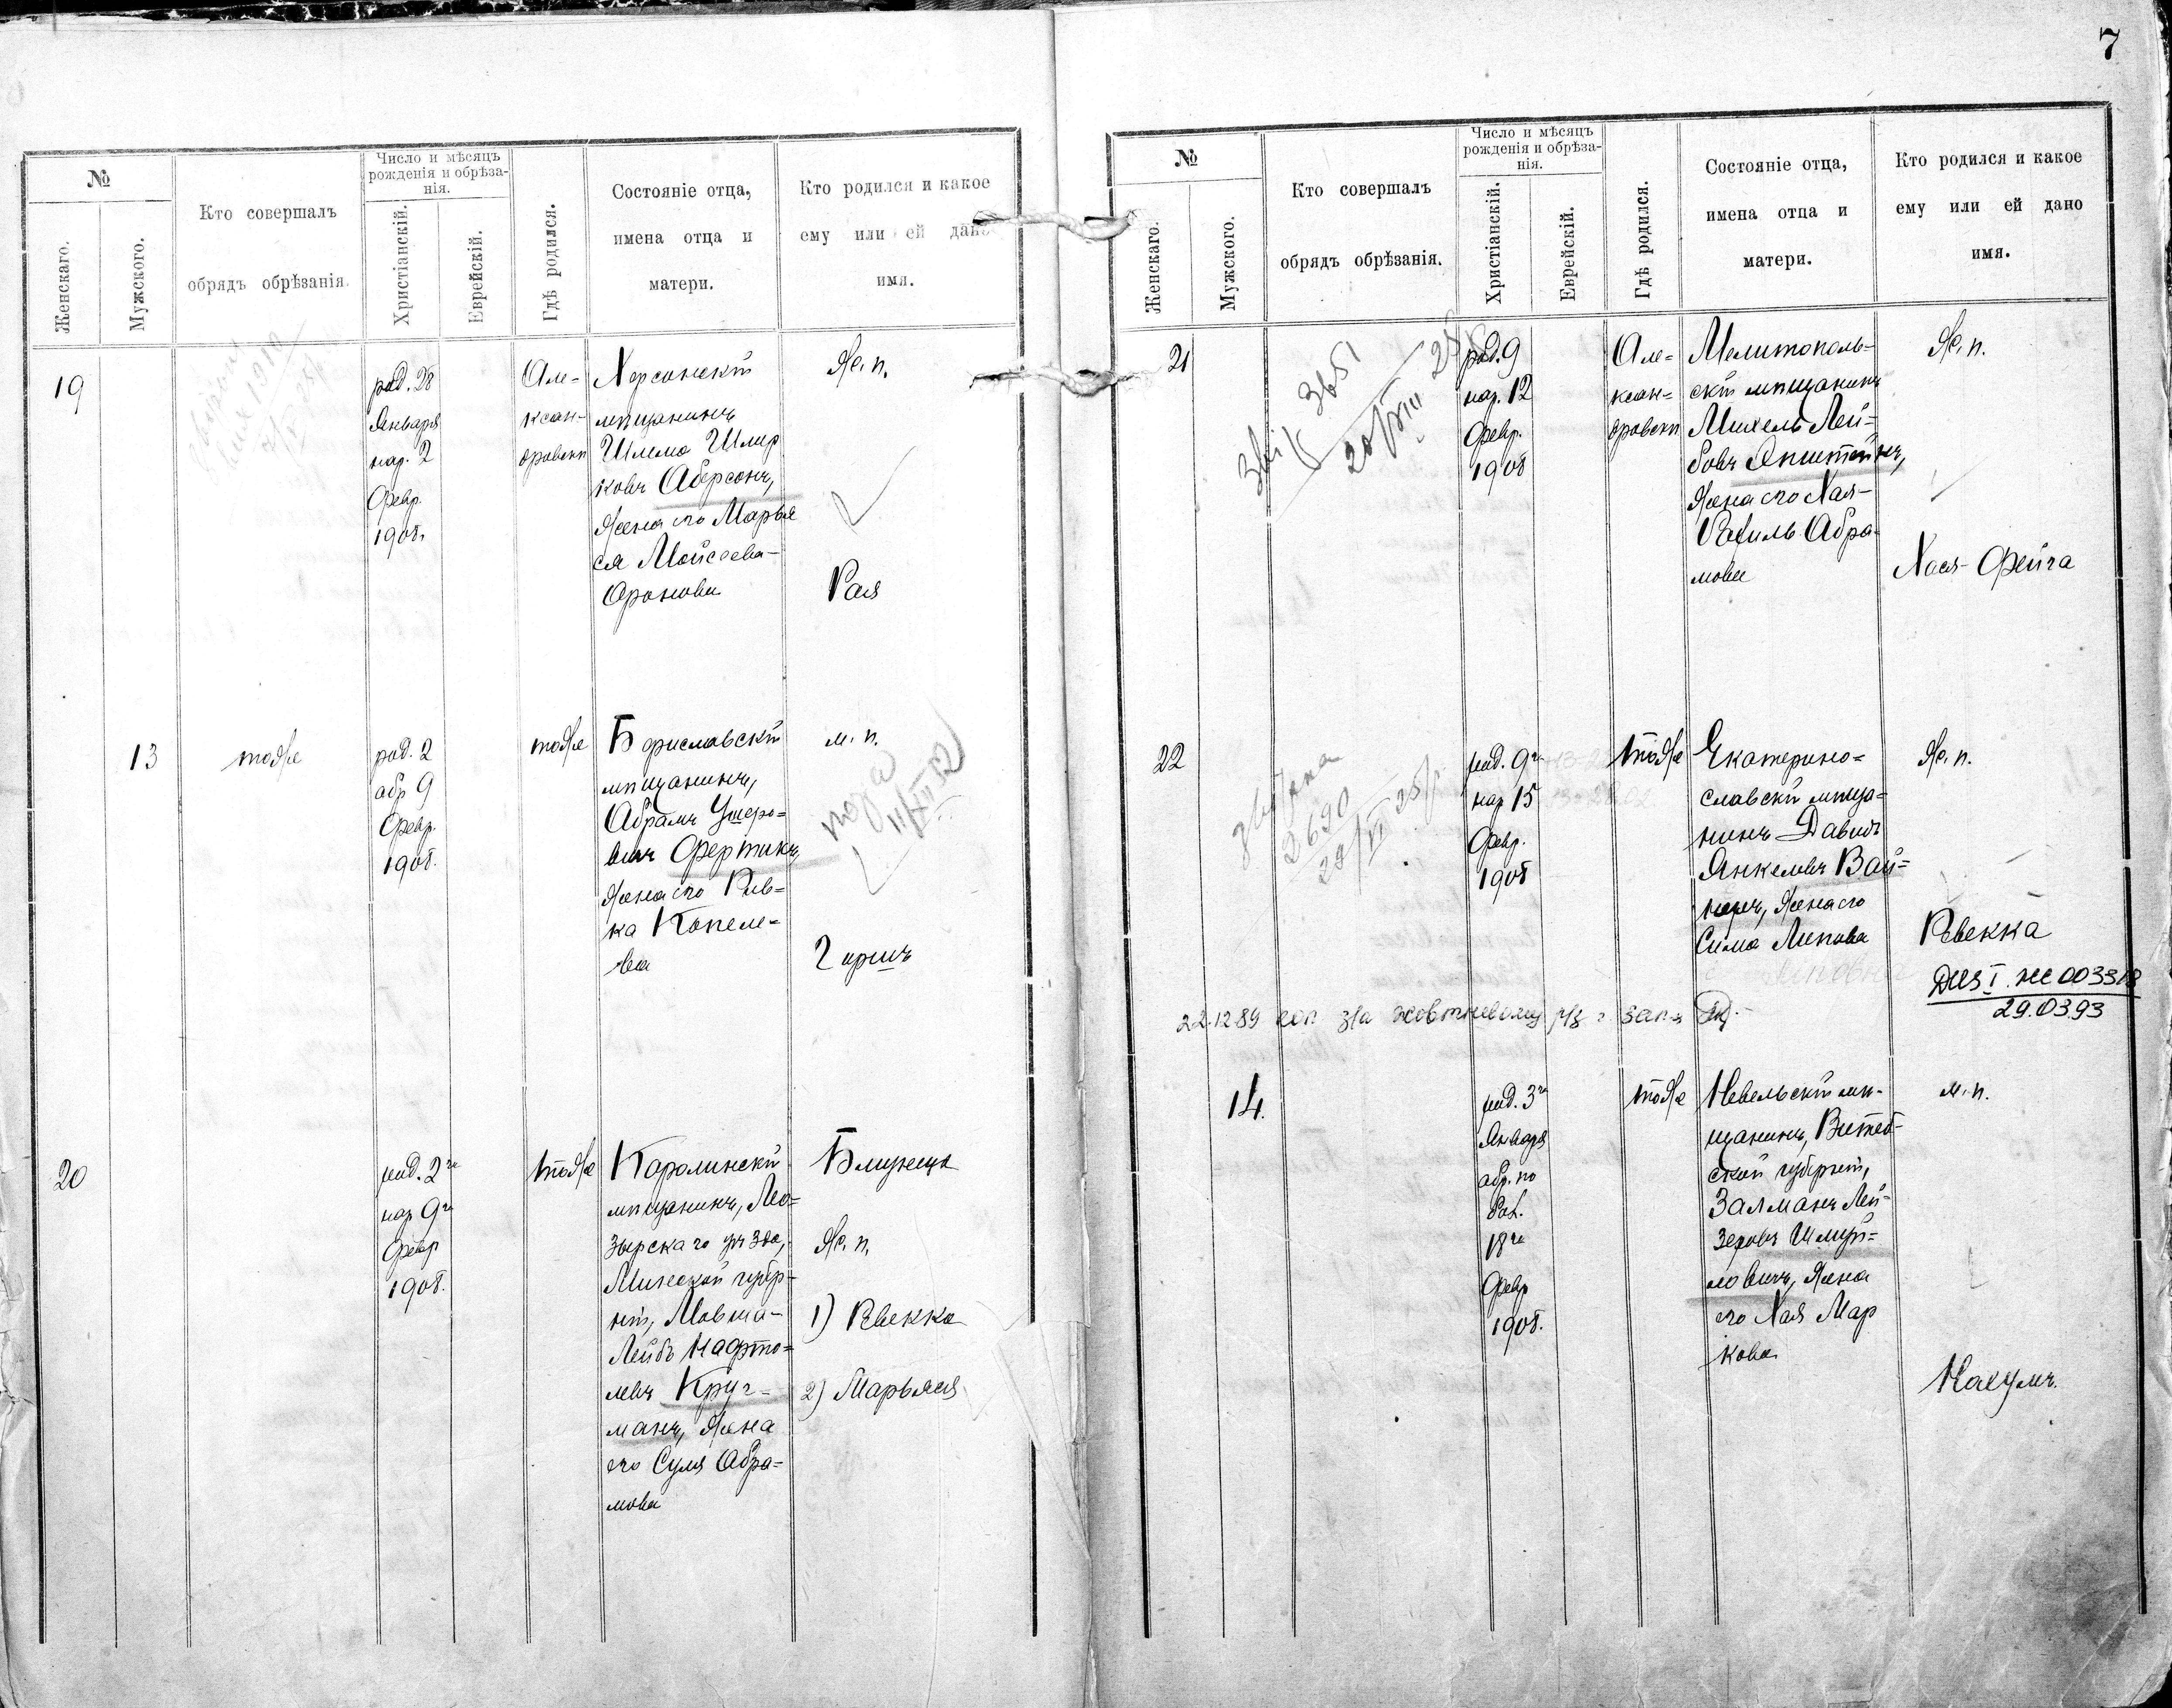 7
№
Женскаго.
Мужского.
Кто совершалъ
обрядъ обрѣзанія.
Число и мѣсяцъ
рожденія и обрѣза-
нія.
Христіанскій.
Еврейскій.
Гдѣ родился.
Состояніе отца,
имена отца и
матери.
Кто родился и какое
ему или ей дано
имя.
19
род. 28
Января
нар. 2
Февр.
1908.
Але=
ксан=
дровскѣ
Херсонскій
мѣщанинъ
Шлема Шмер
ковъ Аберсонъ,
жена его Марья
ся Мойсеева-
Аронова
ж. п.
Рая
13
тоже
род. 2
обр 9
Февр.
1908.
тоже
Бориславскій
мѣщанинъ,
Абрамъ Ушеро=
вичъ Фертикъ,
жена его Рив=
ка Копеле=
ва
м. п.
11/XII 52
Гиршъ
20
род. 2го
нар 9го
Февр
1908.
тоже
Каролинскій
мѣщанинъ, Мо=
зырскаго уѣзда,
Минской губер-
ніи, Мовша-
Лейбъ Нафто=
левъ Круг-
манъ, жена
его Суля Абра=
мова
Близнецы
ж. п.
1) Ревекка
2) Марьяся
№
Женскаго.
Мужского.
Кто совершалъ
обрядъ обрѣзанія.
Число и мѣсяцъ
рожденія и обрѣза-
нія.
Христіанскій.
Еврейскій.
Гдѣ родился.
Состояніе отца,
имена отца и
матери.
Кто родился и какое
ему или ей дано
имя.
21
3651
род. 9
нар. 12
Февр.
1908
Але=
ксан=
дровскѣ
Мелитополь=
скій мѣщанинъ
Михель Лей=
бовъ Эпштейнъ,
жена его Хая-
Рахиль Абра-
мова
ж. п.
Хася-Фейга
22
2690
28/VI 25
род. 9го
нар 15
Февр.
1908
тоже
Екатерино=
славскій мѣща=
нинъ Давидъ
Янкелевъ Вай=
неръ, жена его
Сима Липова
ж. п.
Ревекка
29.03.93
22.12.89
14.
род. 3го
Января
обр. по
бол.
18го
Февр
1908.
тоже
Невельскій мѣ-
щанинъ, Витеб-
ской губерніи,
Залманъ Лей-
зеровъ Шмуй=
ловичъ, жена
его Хая Мар
кова
м. п.
Нахумъ.